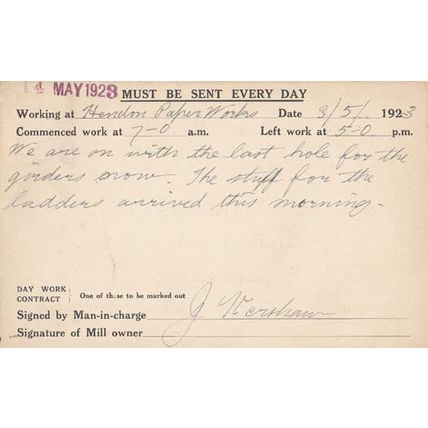 14 MAY 1923
MUST BE SENT EVERY DAY
Working at Hendon Paper Works Date 3/5/ 1923
Commenced work at 7-0 a.m. Left work at 5-0 p.m.
We are on with the last hole for the
girders now. The stuff for the
ladders arrived this morning.
DAY WORK
CONTRACT } One of these to be marked out
Signed by Man-in-charge J Kershaw
Signature of Mill owner